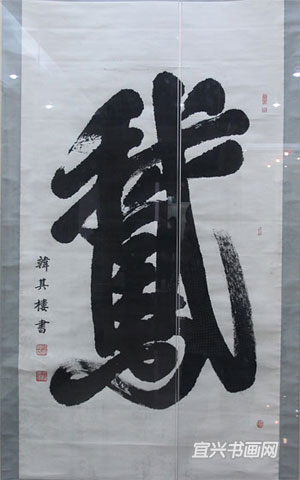 鵞
韓其樓書
宜兴书画网